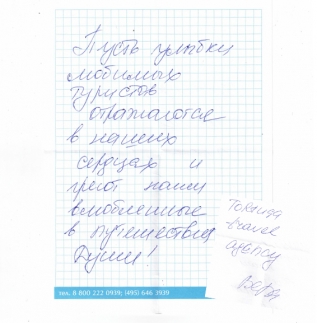 Пусть улыбки
любимых
туристов
отражаются
в наших
сердцах и
греют наши
влюбленные
в путешествия
Души!
travel
agency
Вера
тел. 8 800 222 0939; (495) 646 3939